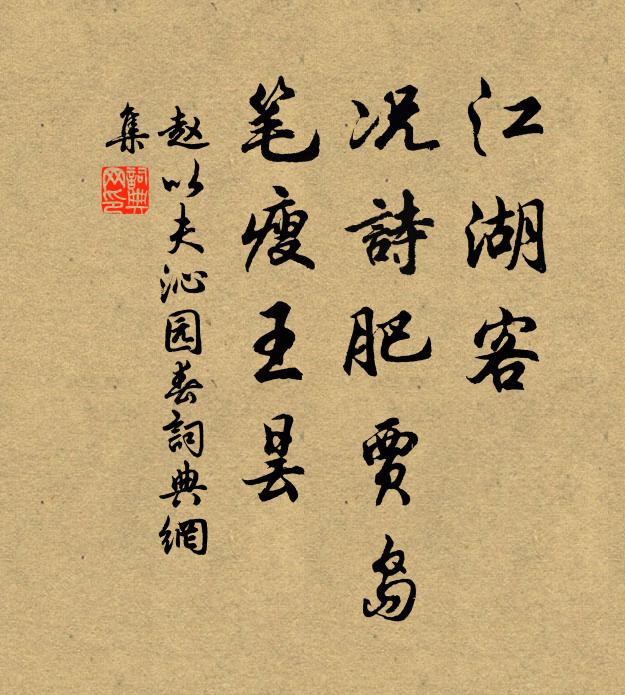 江湖客
况詩肥賈島
笔瘦王昙
赵以夫沁园春詞典網
集
詞典
网印